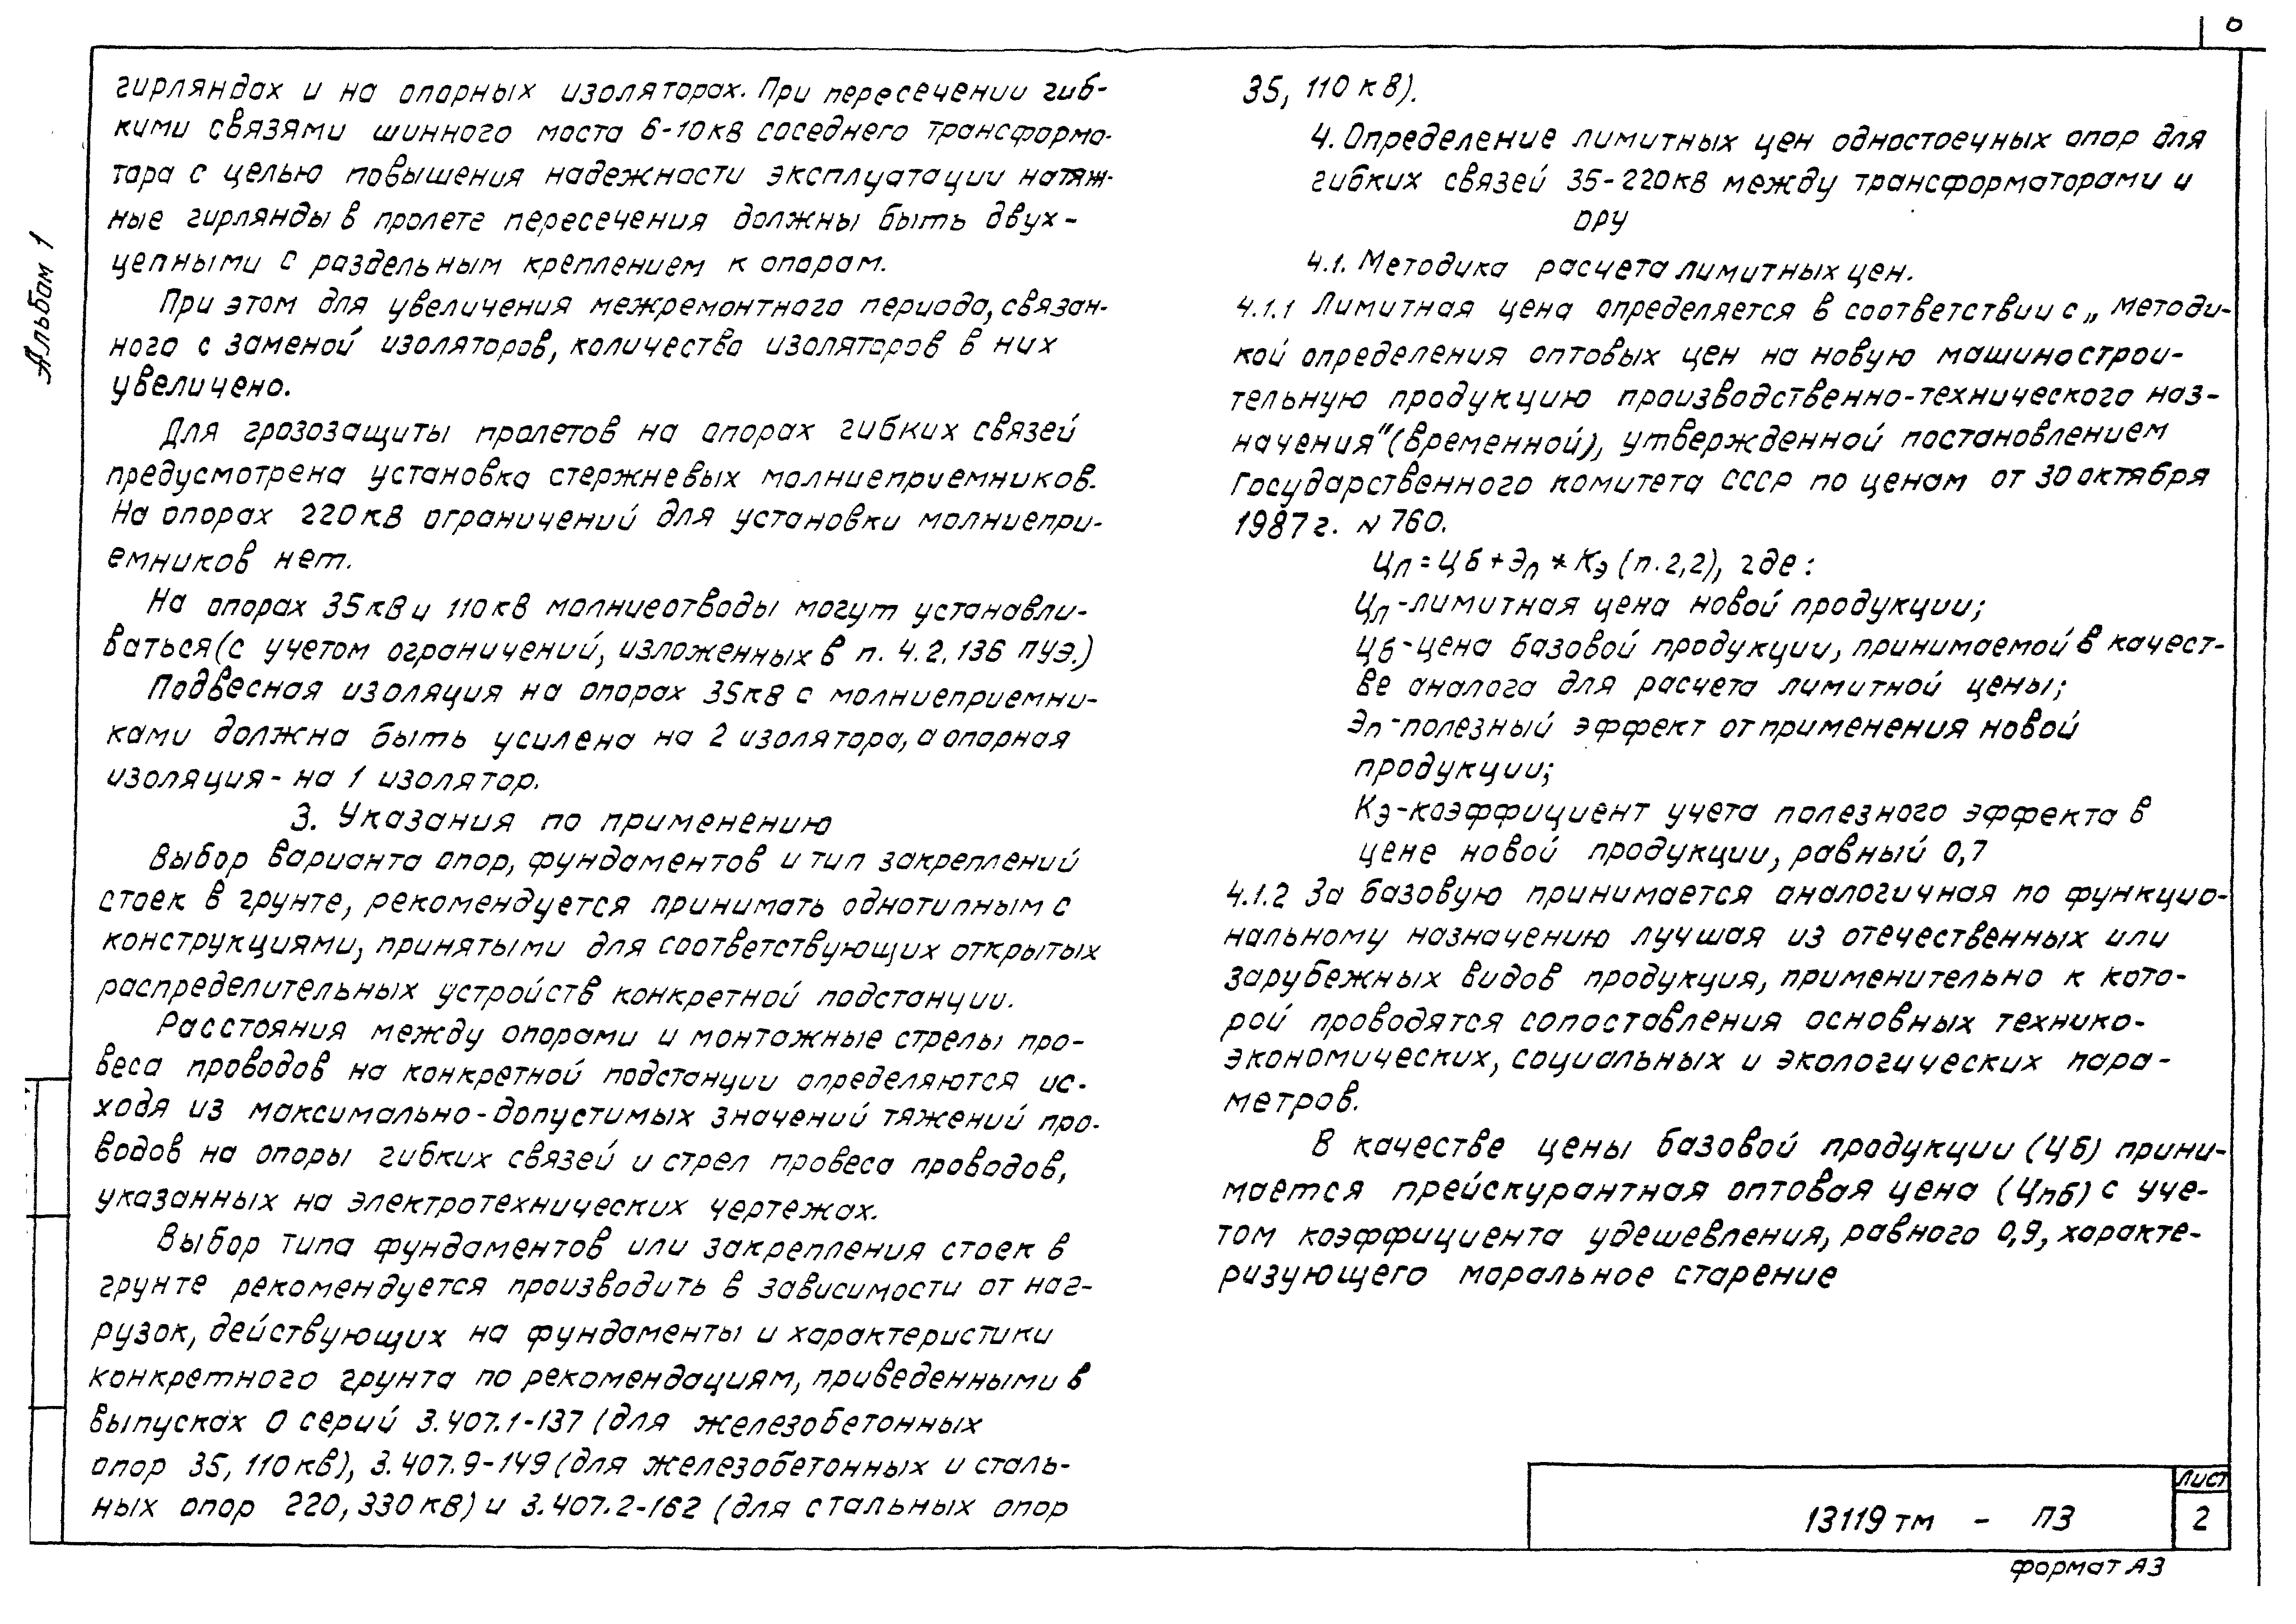 Альбом 1
гирляндах и на опорных изоляторах. При пересечении гиб-
кими связями шинного моста 6-10кВ соседнего трансформа-
тора с целью повышения надежности эксплуатации натяж-
ные гирлянды в пролете пересечения должны быть двух-
цепными с раздельным креплением к опорам.
При этом для увеличения межремонтного периода, связан-
ного с заменой изоляторов, количество изоляторов в них
увеличено.
Для грозозащиты пролетов на опорах гибких связей
предусмотрена установка стержневых молниеприемников.
На опорах 220кВ ограничений для установки молниепри-
емников нет.
На опорах 35кВ и 110кВ молниеотводы могут устанавли-
ваться (с учетом ограничений, изложенных в п. 4.2.136 ПУЭ.)
Подвесная изоляция на опорах 35кВ с молниеприемни-
ками должна быть усилена на 2 изолятора, а опорная
изоляция - на 1 изолятор.
3. Указания по применению
Выбор варианта опор, фундаментов и тип закреплений
стоек в грунте, рекомендуется принимать однотипным с
конструкциями, принятыми для соответствующих открытых
распределительных устройств конкретной подстанции.
Расстояния между опорами и монтажные стрелы про-
веса проводов на конкретной подстанции определяются ис-
ходя из максимально-допустимых значений тяжений про-
водов на опоры гибких связей и стрел провеса проводов,
указанных на электротехнических чертежах.
Выбор типа фундаментов или закрепления стоек в
грунте рекомендуется производить в зависимости от наг-
рузок, действующих на фундаменты и характеристики
конкретного грунта по рекомендациям, приведенными в
выпусках 0 серий 3.407.1-137 (для железобетонных
опор 35, 110кВ), 3.407.9-149 (для железобетонных и сталь-
ных опор 220, 330кВ) и 3.407.2-162 (для стальных опор
35, 110кВ).
4. Определение лимитных цен одностоечных опор для
гибких связей 35-220кВ между трансформаторами и
ОРУ
4.1. Методика расчета лимитных цен.
4.1.1 Лимитная цена определяется в соответствии с „Методи-
кой определения оптовых цен на новую машинострои-
тельную продукцию производственно-технического наз-
начения" (временной), утвержденной постановлением
Государственного комитета СССР по ценам от 30 октября
1987г. N 760.
Цл = Цб + Эп * Кэ (п.2,2), где:
Цл - лимитная цена новой продукции;
Цб - цена базовой продукции, принимаемой в качест-
ве аналога для расчета лимитной цены;
Эп - полезный эффект от применения новой
продукции;
Кэ - коэффициент учета полезного эффекта в
цене новой продукции, равный 0,7
4.1.2 За базовую принимается аналогичная по функцио-
нальному назначению лучшая из отечественных или
зарубежных видов продукция, применительно к кото-
рой проводятся сопоставления основных технико-
экономических, социальных и экологических пара-
метров.
В качестве цены базовой продукции (Цб) прини-
мается прейскурантная оптовая цена (Цпб) с уче-
том коэффициента удешевления, равного 0,9, характе-
ризующего моральное старение
13119 тм - ПЗ
Лист
2
формат А3